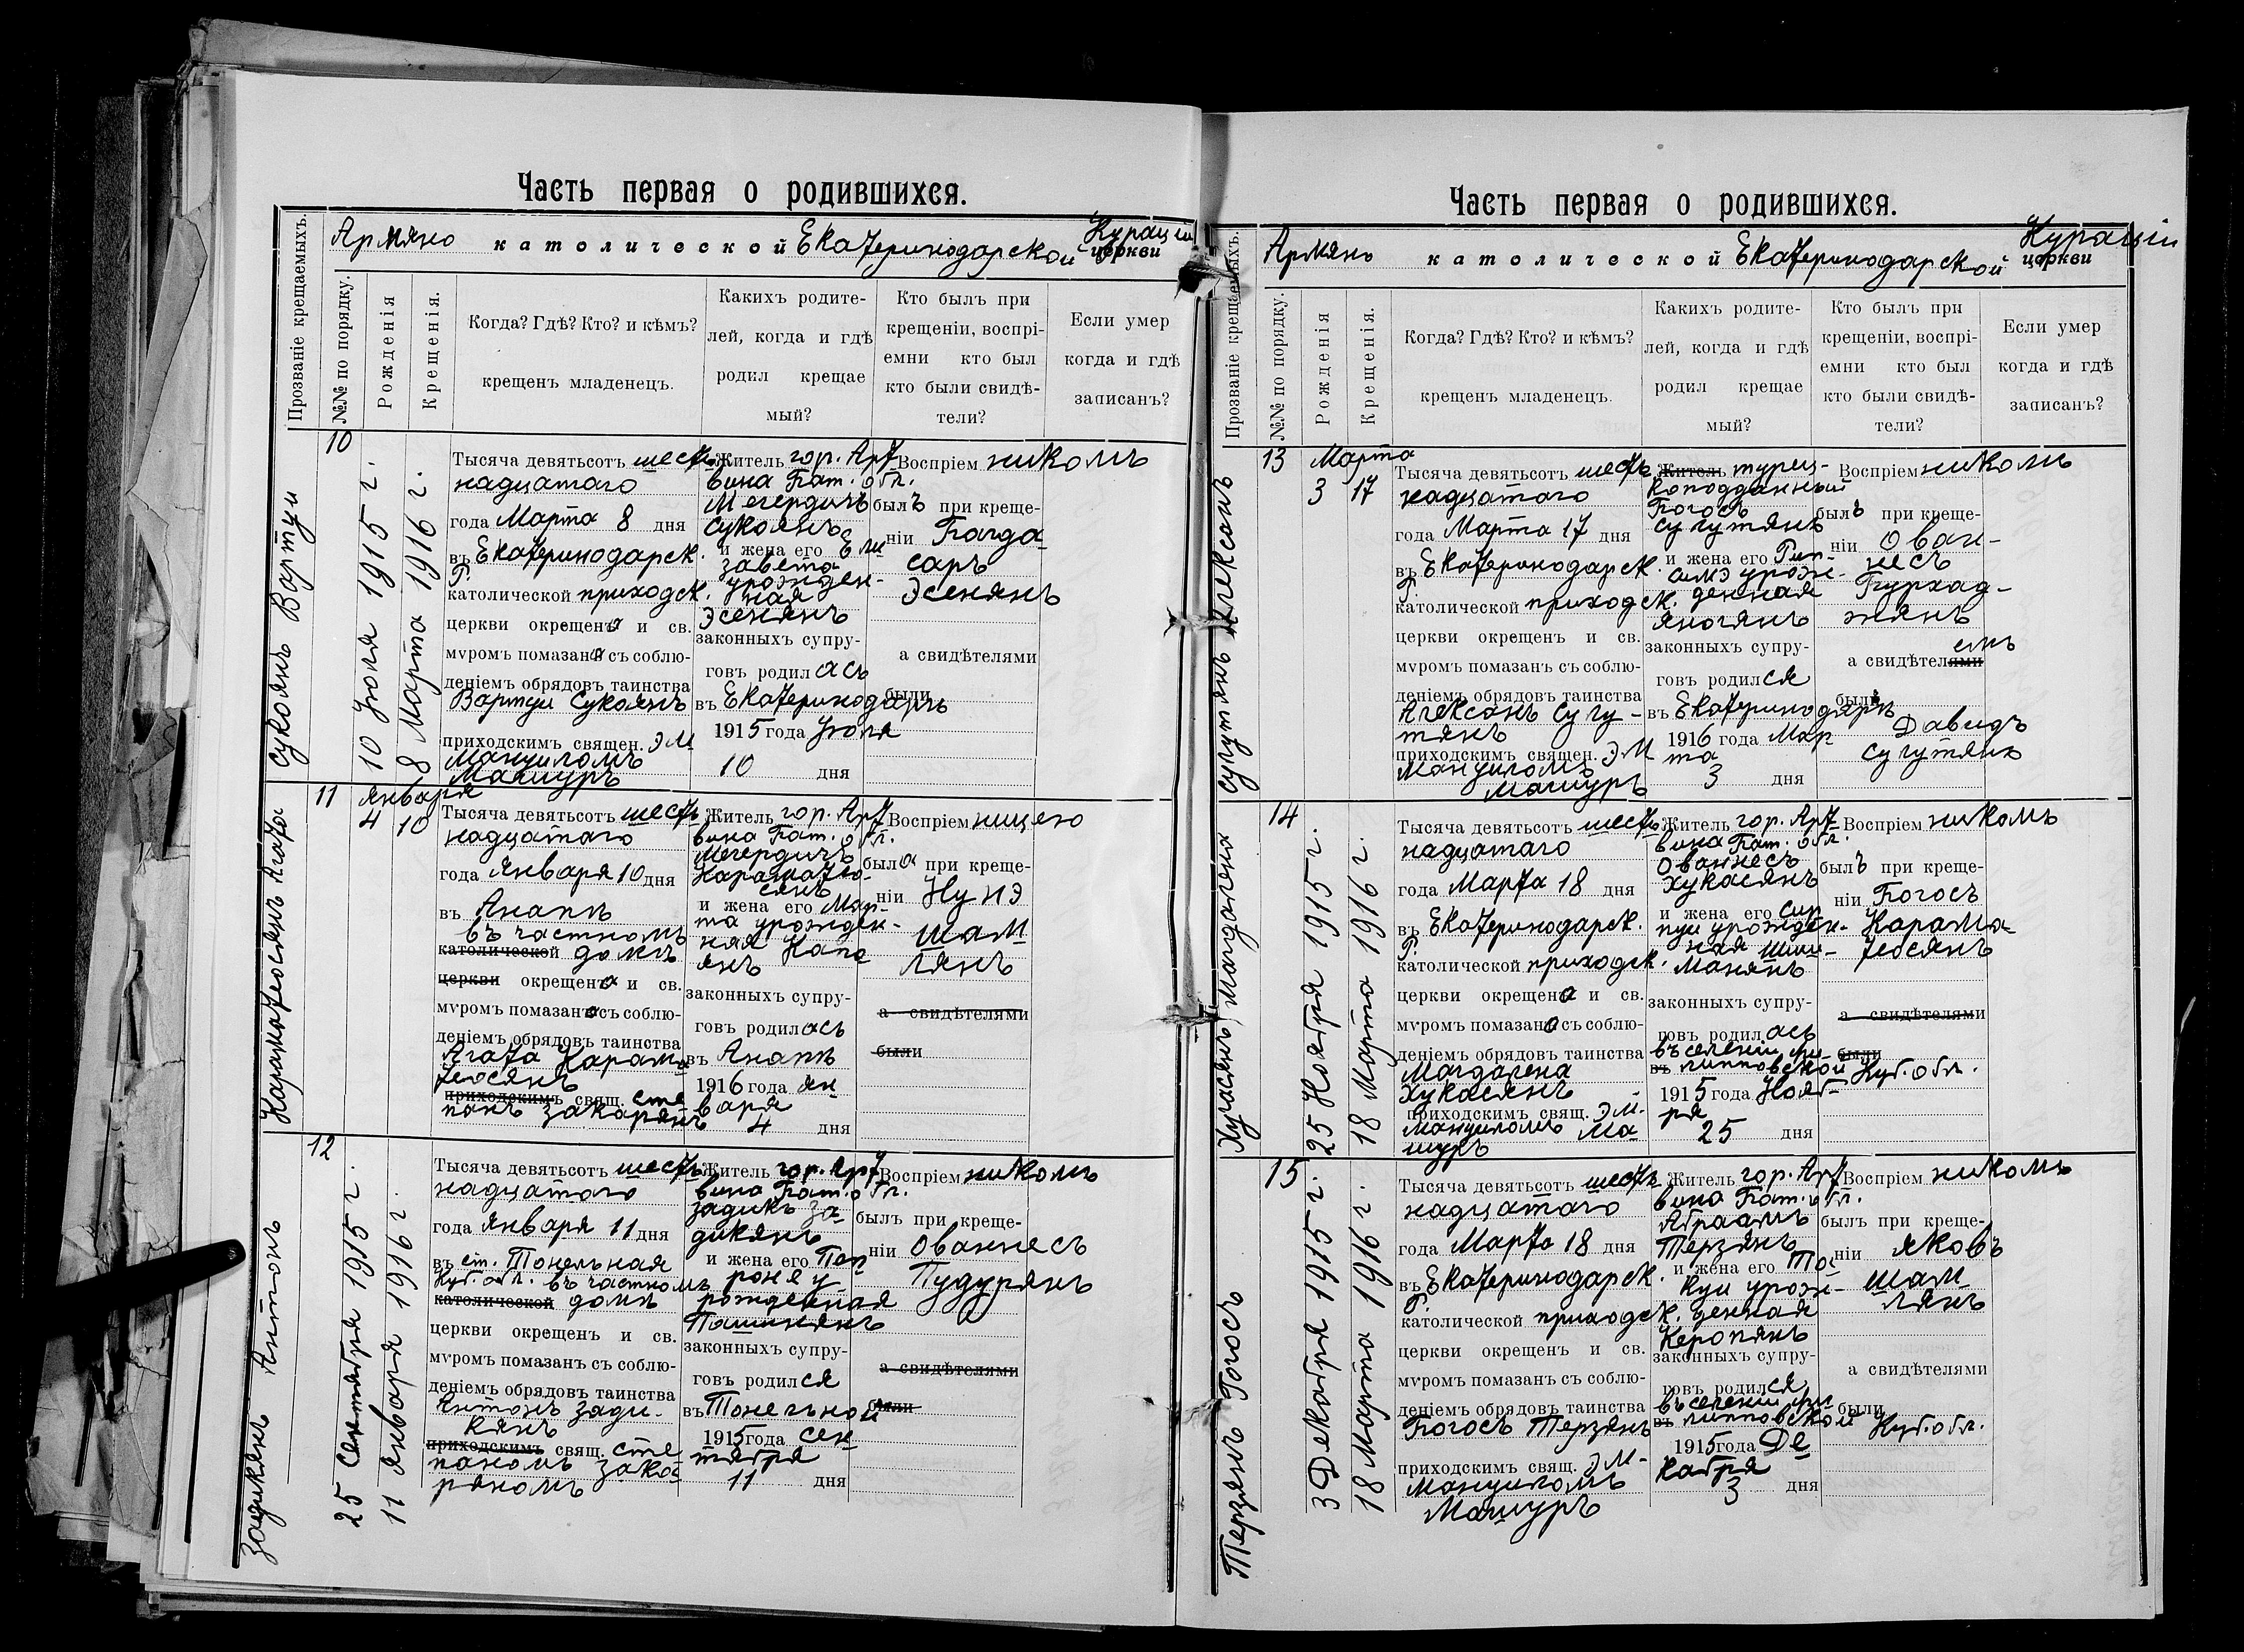 Часть первая о родившихся.
Армяно католической Екатеринодарской Курацiи церкви
Прозванiе крещаемыхъ.
№№ по порядку.
Рожденiя
Крещенiя.
Когда? Гдѣ? Кто? и кѣмъ?
крещенъ младенецъ.
Какихъ родите-
лей, когда и гдѣ
родил крещае
мый?
Кто былъ при
крещенiи, воспрi-
емни кто был
кто были свидѣ-
тели?
Если умер
когда и гдѣ
записанъ?
Сукоянъ Вартуи
10
10 Iюля 1915 г.
8 Марта 1916 г.
Тысяча девятьсотъ шесть
надцатаго
года Марта 8 дня
въ Екатеринодарск.
Р.
католической приходск.
церкви окрещена и св.
мѵромъ помазана съ соблю-
денiемъ обрядовъ таинства
Вартуи Сукоянъ
приходскимъ священ. Эм
Мануиломъ
Машуръ
Житель гор. Арт
вина Бат. обл.
Мегердичъ
Сукоянъ
и жена его Ели
завета
урожден-
ная
Эсеянъ
законныхъ супру-
говъ родилась
въ Екатеринодаръ
1915 года Iюля
10 дня
Воспрiем никомъ
былъ при креще-
нiи Богда
саръ
Эсеянъ
а свидѣтелями
были
Караматеосянъ Агата
11
Января
4 10
Тысяча девятьсотъ шесть
надцатаго
года Января 10 дня
въ Анапѣ
въ частномъ
католической домѣ
церкви окрещена и св.
мѵромъ помазана съ соблю-
денiемъ обрядовъ таинства
Агата Карама
теосянъ
приходскимъ свящ. Сте
панъ Закарянъ
Житель гор. Арт
вина Бат. обл.
Мегердичъ
Карамате-
осянъ
и жена его Мар-
та урожден-
ная Капа
янъ
законныхъ супру-
говъ родилась
въ Анапѣ
1916 года Ян
варя
4 дня
Воспрiем ницею
была при креще-
нiи Нунэ
Шам
лянъ
а свидѣтелями
были
Задикянъ Антонъ
12
25 Сентября 1915 г.
11 Января 1916 г.
Тысяча девятьсотъ шесть
надцатаго
года Января 11 дня
въ ст. Тонельная
Куб. обл. въ частномъ
католической домѣ
церкви окрещенъ и св.
мѵромъ помазанъ съ соблю-
денiемъ обрядовъ таинства
Антонъ Зади-
кянъ
приходскимъ свящ. Сте
паномъ Зака
ряномъ
Житель гор. Арт
вина Бат. обл.
Задикъ За
дикянъ
и жена его Пап
роня у
рожденная
Пашинянъ
законныхъ супру-
говъ родился
въ Тонельной
1915 года Сен
тября
11 дня
Воспрiем никомъ
былъ при креще-
нiи Ованнесъ
Пудурянъ
а свидѣтелями
были
Часть первая о родившихся.
Армянъ католической Екатеринодарской Курацiи церкви
Прозванiе крещаемыхъ.
№№ по порядку.
Рожденiя
Крещенiя.
Когда? Гдѣ? Кто? и кѣмъ?
крещенъ младенецъ.
Какихъ родите-
лей, когда и гдѣ
родил крещае
мый?
Кто былъ при
крещенiи, воспрi-
емни кто был
кто были свидѣ-
тели?
Если умер
когда и гдѣ
записанъ?
Сугутянъ Алексанъ
13
Марта
3 17
Тысяча девятьсотъ шесть
надцатаго
года Марта 17 дня
въ Екатеринодарск.
Р.
католической приходск.
церкви окрещен и св.
мѵромъ помазан съ соблю-
денiемъ обрядовъ таинства
Алексанъ Сугу-
тянъ
приходскимъ священ. Эм
Мануиломъ
Машуръ
Житель турец-
коподданный
Богосъ
Сугутянъ
и жена его Рип-
симэ урож-
денная
Яногянъ
законныхъ супру-
говъ родился
въ Екатеринодаръ
1916 года Мар
та
3 дня
Воспрiем никомъ
былъ при креще-
нiи Ован-
несъ
Бурхад-
жянъ
а свидѣтелями емъ
былъ
Давидъ
Сугутянъ
Хукасянъ Магдалена
14
25 Ноября 1915 г.
18 Марта 1916 г.
Тысяча девятьсотъ шесть
надцатаго
года Марта 18 дня
въ Екатеринодарск.
Р.
католической приходск.
церкви окрещена и св.
мѵромъ помазана съ соблю-
денiемъ обрядовъ таинства
Магдалена
Хукасянъ
приходскимъ свящ. Эм-
Мануиломъ Ма-
шуръ
Житель гор. Арт
вина Бат. обл.
Ованнесъ
Хукасянъ
и жена его Сир
пуи урожден-
ная Шиш-
манянъ
законныхъ супру-
говъ родилась
въ селенiи Фи-
въ липповской Куб. обл.
1915 года Нояб-
ря
25 дня
Воспрiем никомъ
былъ при креще-
нiи Богосъ
Карама-
теосянъ
а свидѣтелями
были
Терзянъ Богосъ
15
3 Декабря 1915 г.
18 Марта 1916 г.
Тысяча девятьсотъ шесть
надцатаго
года Марта 18 дня
въ Екатеринодарск.
Р.
католической приходск.
церкви окрещенъ и св.
мѵромъ помазанъ съ соблю-
денiемъ обрядовъ таинства
Богосъ Терзянъ
приходскимъ свящ. Эм-
Мануиломъ
Машуръ
Житель гор. Арт
вина Бат. обл.
Абраамъ
Терзянъ
и жена его Та
куи урож-
денная
Керопянъ
законныхъ супру-
говъ родился
въ селенiи Фи
въ липповской Куб. обл.
1915 года Де
кабря
3 дня
Воспрiем никомъ
былъ при креще-
нiи Яковъ
Шам
лянъ
а свидѣтелями
были